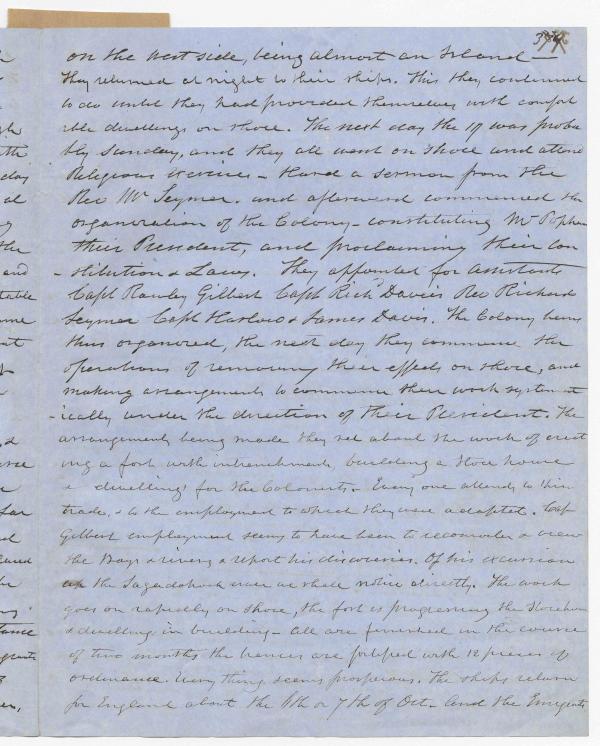 374
on the west side, being almost an Island —
they returned at night to their ships. This they continued
to do until they had provided themselves with comfort
able dwellings on shore. The next day the 19 was proba
bly Sunday, and they all went on shore and attend
Religious exercises – Heard a sermon from the
Rev Mr Seymer. and afterward commenced the
organization of the Colony – constituting Mr Popham
their President, and proclaiming their con
-stitution & Laws. They appointed for assistants
Capt Rawley Gilbert Capt Rich Davies Rev Richard
Seymer Capt Harlow & James Davis. The Colony being
thus organized, the next day they commence the
operations of removing their effects on shore, and
making arrangements to commence their work systemat
-ically under the direction of their President. The
arrangements being made they set about the work of erect
ing a fort with intrenchments, building a store house
& dwellings for the Colonists – Every one attends to his
trade, & to the employment to which they were adapted. Capt
Gilbert employment seems to have been to reconnoiter & view
the Bays & rivers & report his discoveries. Of his excursion
up the Sagadahock river we shall notice directly. The work
goes on rapidly on shore, the fort is progressing the Storehouse
& dwelling in building – all are finished in the course
of two months the houses are fortified with 12 pieces of
ordinance. Every thing seems prosperous. The ships return
for England about the 6th or 7th of Oct. And the Emigrants